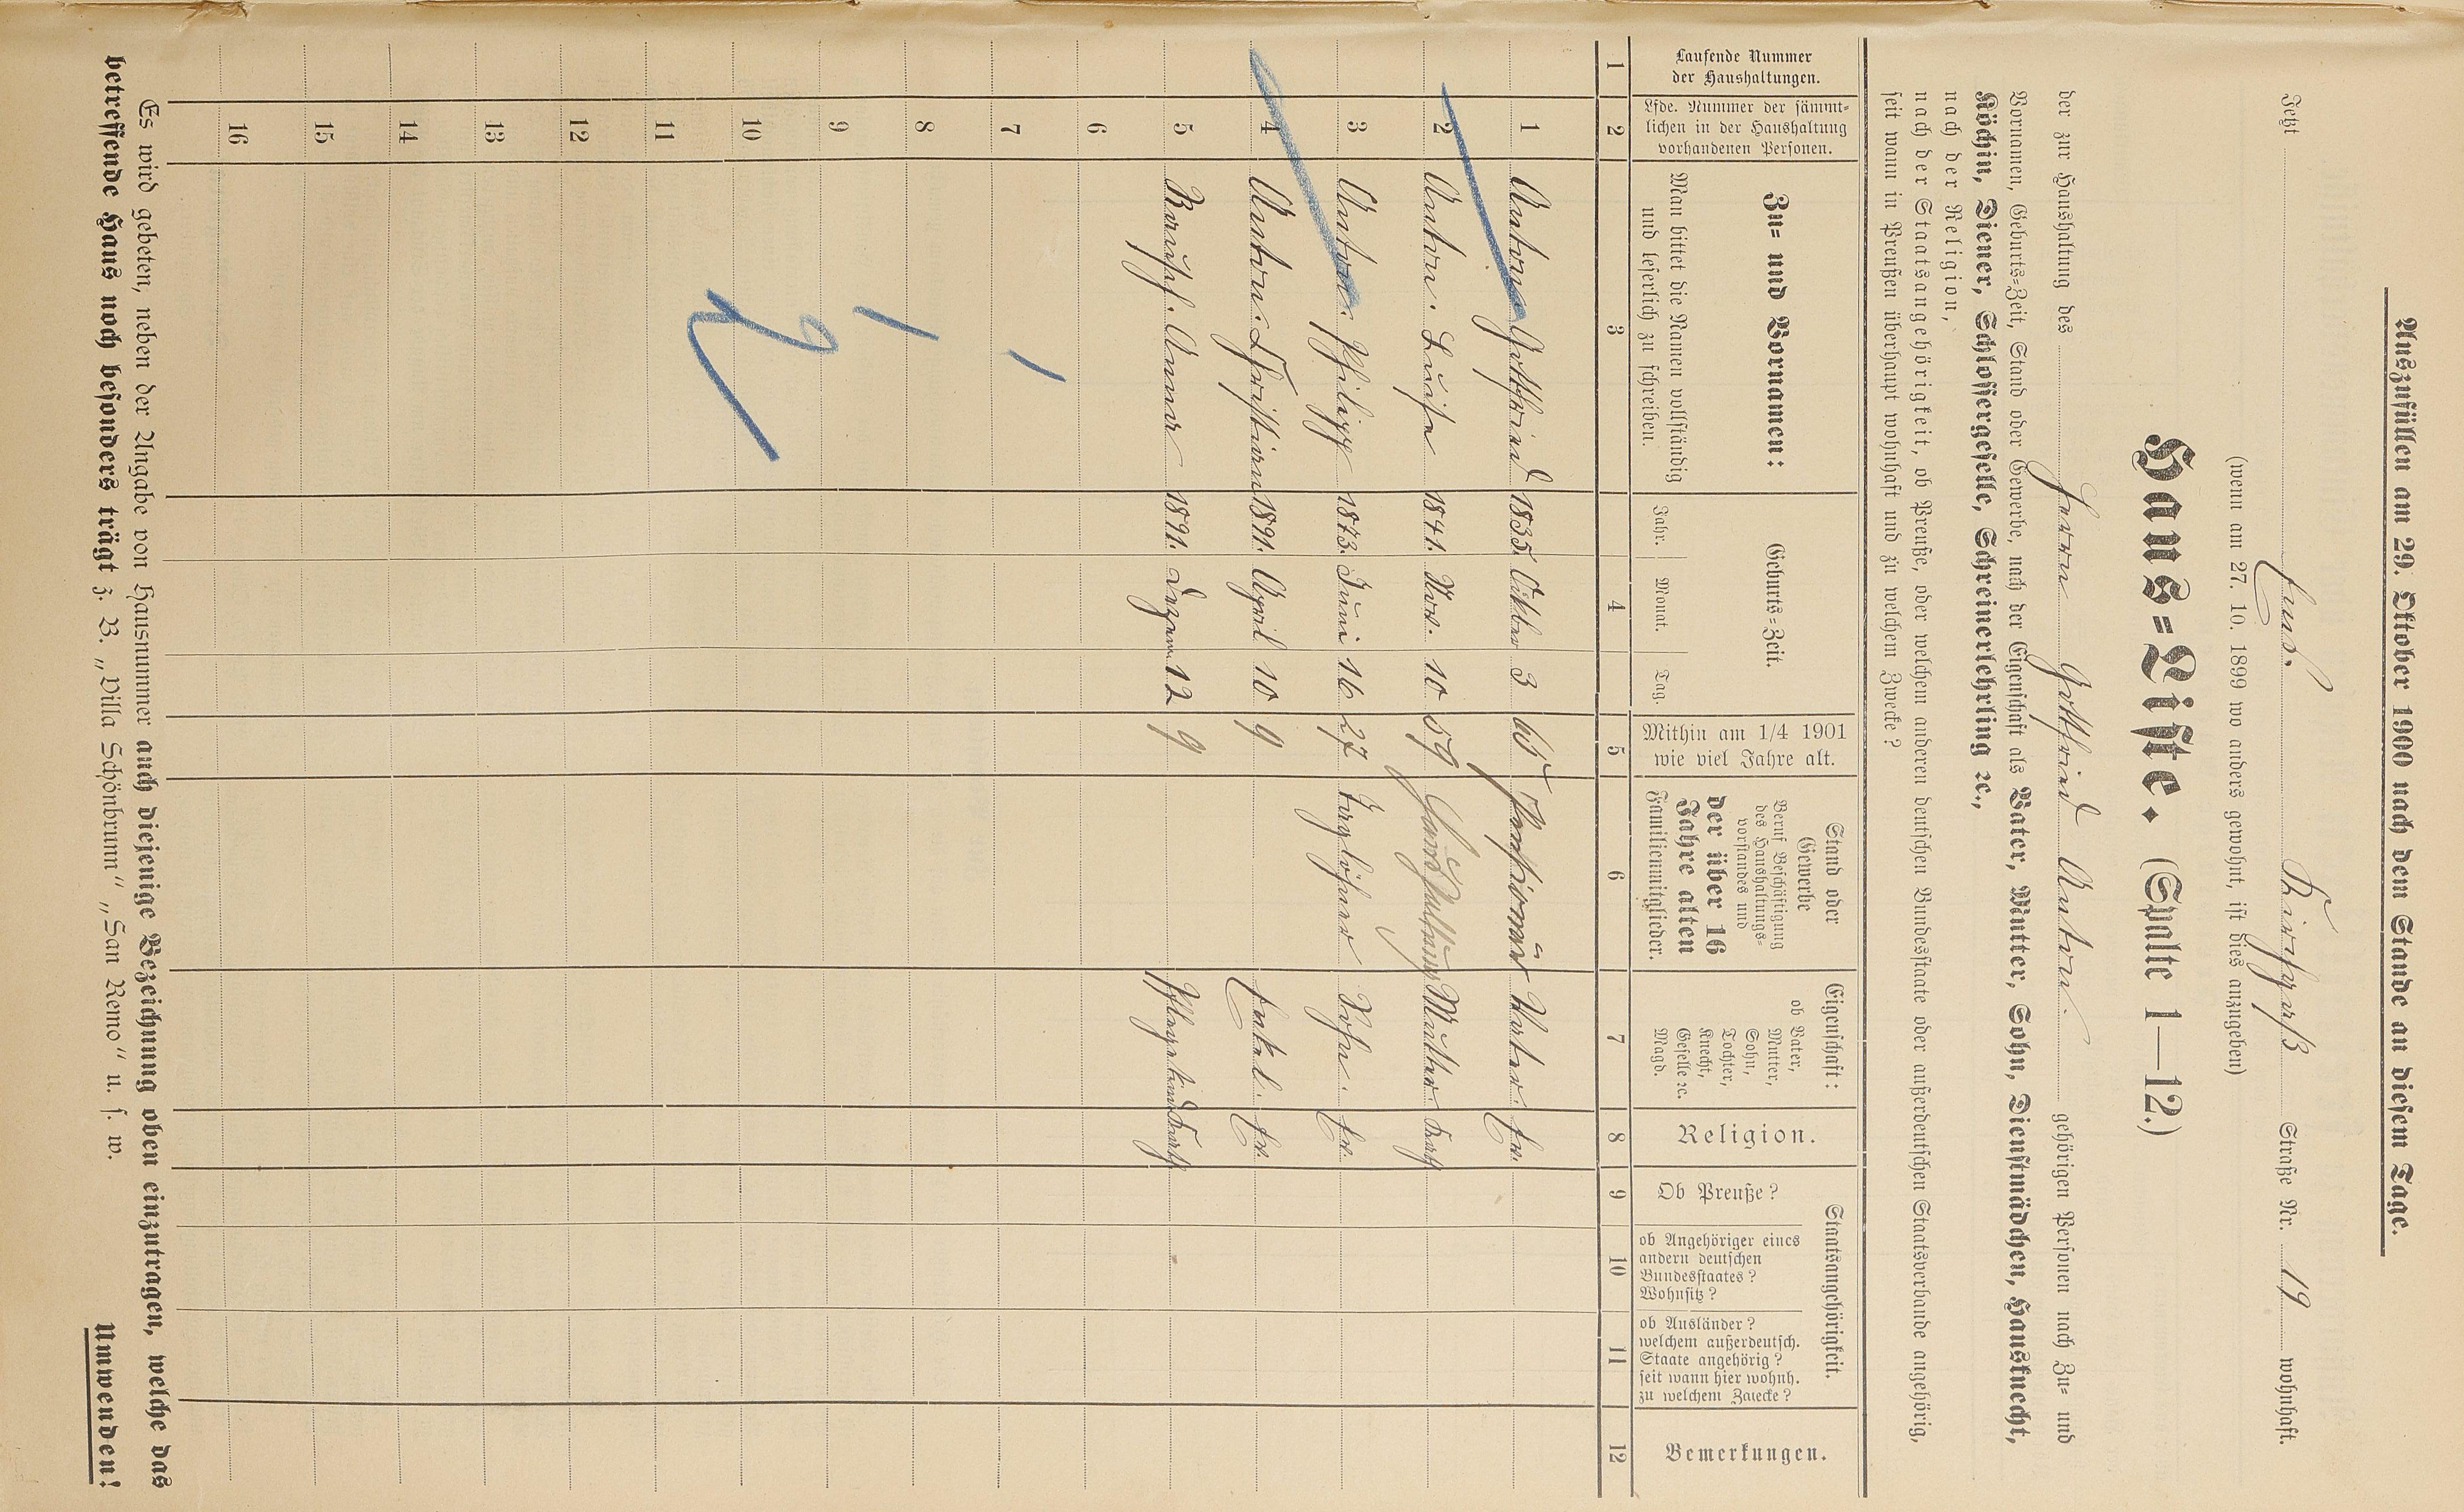 Auszufüllen am 29. Oktober 1900 nach dem Stande an diesem Tage.
Jetzt Ems. Kirchgaß Straße Nr. 19 wohnhaft.
(wenn am 27. 10. 1899 wo anders gewohnt, ist dies anzugeben)
Haus-Liste. (Spalte 1—12.)
der zur Haushaltung des Herrn Gottfried Anton. gehörigen Personen nach Zu- und
Vornamen, Geburts-Zeit, Stand oder Gewerbe, nach der Eigenschaft als Vater, Mutter, Sohn, Dienstmädchen, Hausknecht,
Köchin, Diener, Schlossergeselle, Schreinerlehrling ec.,
nach der Religion,
nach der Staatsangehörigkeit, ob Preuße, oder welchem anderen deutschen Bundesstaate oder außerdeutschen Staatsverbande angehörig,
seit wann in Preußen überhaupt wohnhaft und zu welchem Zwecke?
Laufende Nummer
der Haushaltungen.
Lfde. Nummer der sämmt-
lichen in der Haushaltung
vorhandenen Personen.
Zu- und Vornamen:
Man bittet die Namen vollständig
und leserlich zu schreiben.
Geburts-Zeit.
Jahr. Monat. Tag.
Mithin am 1/4 1901
wie viel Jahre alt.
Stand oder
Gewerbe
Beruf Beschäftigung
des Haushaltungs-
vorstandes und
der über 16
Jahre alten
Familienmitglieder.
Eigenschaft:
ob Vater,
Mutter,
Sohn,
Tochter,
Knecht,
Geselle ec.
Magd.
Religion.
Staatsangehörigkeit.
Ob Preuße?
ob Angehöriger eines
andern deutschen
Bundesstaates?
Wohnsitz?
ob Ausländer?
welchem außerdeutsch.
Staate angehörig?
seit wann hier wohnh.
zu welchem Zwecke?
Bemerkungen.
1 2 3 4 5 6 7 8 9 10 11 12
1 Anton Gottfried 1835 Oktber 3 65 Pensionär Vater. Ev.
2 Anton. Luise 1841. Nov. 10 59 Haushaltung Mutter Kath
3 Anton. Philipp 1873. Juni 16 27 Taglöhner Sohn. Ev.
4 Anton. Christian 1891. April 10 9 Enkel. Ev.
5 Anna 1891. Dezem. 12 9 Pflegekind Kath
6
7
8
9
10
11
12
13
14
15
16
Es wird gebeten, neben der Angabe von Hausnummer auch diejenige Bezeichnung oben einzutragen, welche das
betreffende Haus noch besonders trägt z. B. „Villa Schönbrunn“ „San Remo“ u. s. w.
Umwenden!